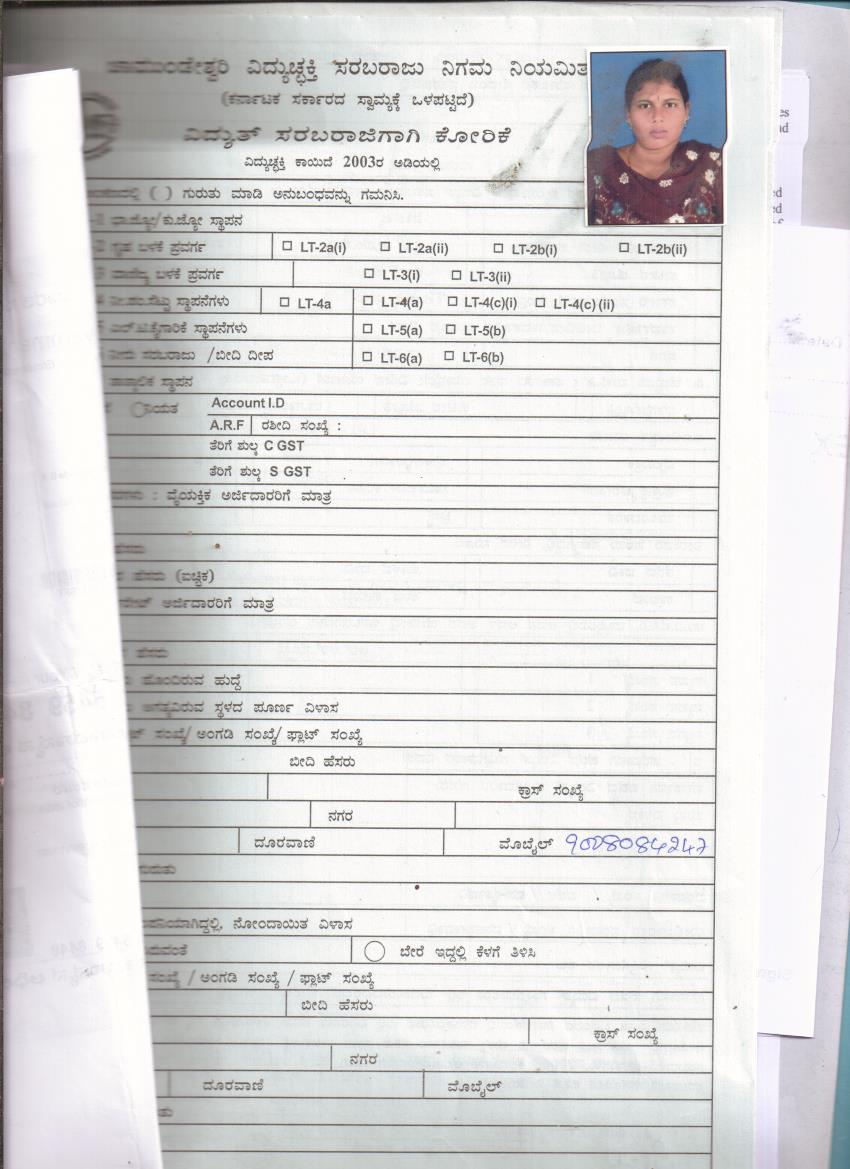 ಚಾಮುಂಡೇಶ್ವರಿ ವಿದ್ಯುಚ್ಛಕ್ತಿ ಸರಬರಾಜು ನಿಗಮ ನಿಯಮಿತ
(ಕರ್ನಾಟಕ ಸರ್ಕಾರದ ಸ್ವಾಮ್ಯಕ್ಕೆ ಒಳಪಟ್ಟಿದೆ)
ವಿದ್ಯುತ್ ಸರಬರಾಜಿಗಾಗಿ ಕೋರಿಕೆ
ವಿದ್ಯುಚ್ಛಕ್ತಿ ಕಾಯಿದೆ 2003ರ ಅಡಿಯಲ್ಲಿ
( ) ಗುರುತು ಮಾಡಿ ಅನುಬಂಧವನ್ನು ಗಮನಿಸಿ.
ಭಾ.ಜ್ಯೋ/ಕು.ಜ್ಯೋ ಸ್ಥಾಪನ
ಗೃಹ ಬಳಕೆ ಪ್ರವರ್ಗ LT-2a(i) LT-2a(ii) LT-2b(i) LT-2b(ii)
ವಾಣಿಜ್ಯ ಬಳಕೆ ಪ್ರವರ್ಗ LT-3(i) LT-3(ii)
ನೀ.ಪಂ.ಸೆಟ್ಟು ಸ್ಥಾಪನೆಗಳು LT-4a LT-4(a) LT-4(c)(i) LT-4(c)(ii)
ಎಲ್.ಟಿ.ಕೈಗಾರಿಕೆ ಸ್ಥಾಪನೆಗಳು LT-5(a) LT-5(b)
ನೀರು ಸರಬರಾಜು /ಬೀದಿ ದೀಪ LT-6(a) LT-6(b)
ತಾತ್ಕಾಲಿಕ ಸ್ಥಾಪನ
Account I.D
A.R.F ರಶೀದಿ ಸಂಖ್ಯೆ :
ತೆರಿಗೆ ಶುಲ್ಕ C GST
ತೆರಿಗೆ ಶುಲ್ಕ S GST
: ವೈಯಕ್ತಿಕ ಅರ್ಜಿದಾರರಿಗೆ ಮಾತ್ರ
ಹೆಸರು
ಹೆಸರು (ಐಚ್ಛಿಕ)
ಅರ್ಜಿದಾರರಿಗೆ ಮಾತ್ರ
ಹೆಸರು
ಹೊಂದಿರುವ ಹುದ್ದೆ
ಅಗತ್ಯವಿರುವ ಸ್ಥಳದ ಪೂರ್ಣ ವಿಳಾಸ
ಸಂಖ್ಯೆ/ ಅಂಗಡಿ ಸಂಖ್ಯೆ/ ಫ್ಲಾಟ್ ಸಂಖ್ಯೆ
ಬೀದಿ ಹೆಸರು
ಕ್ರಾಸ್ ಸಂಖ್ಯೆ
ನಗರ
ದೂರವಾಣಿ ಮೊಬೈಲ್ 9008084247
ನೋಂದಾಯಿತ ವಿಳಾಸ
ಬೇರೆ ಇದ್ದಲ್ಲಿ ಕೆಳಗೆ ತಿಳಿಸಿ
ಸಂಖ್ಯೆ / ಅಂಗಡಿ ಸಂಖ್ಯೆ / ಫ್ಲಾಟ್ ಸಂಖ್ಯೆ
ಬೀದಿ ಹೆಸರು
ಕ್ರಾಸ್ ಸಂಖ್ಯೆ
ನಗರ
ದೂರವಾಣಿ ಮೊಬೈಲ್